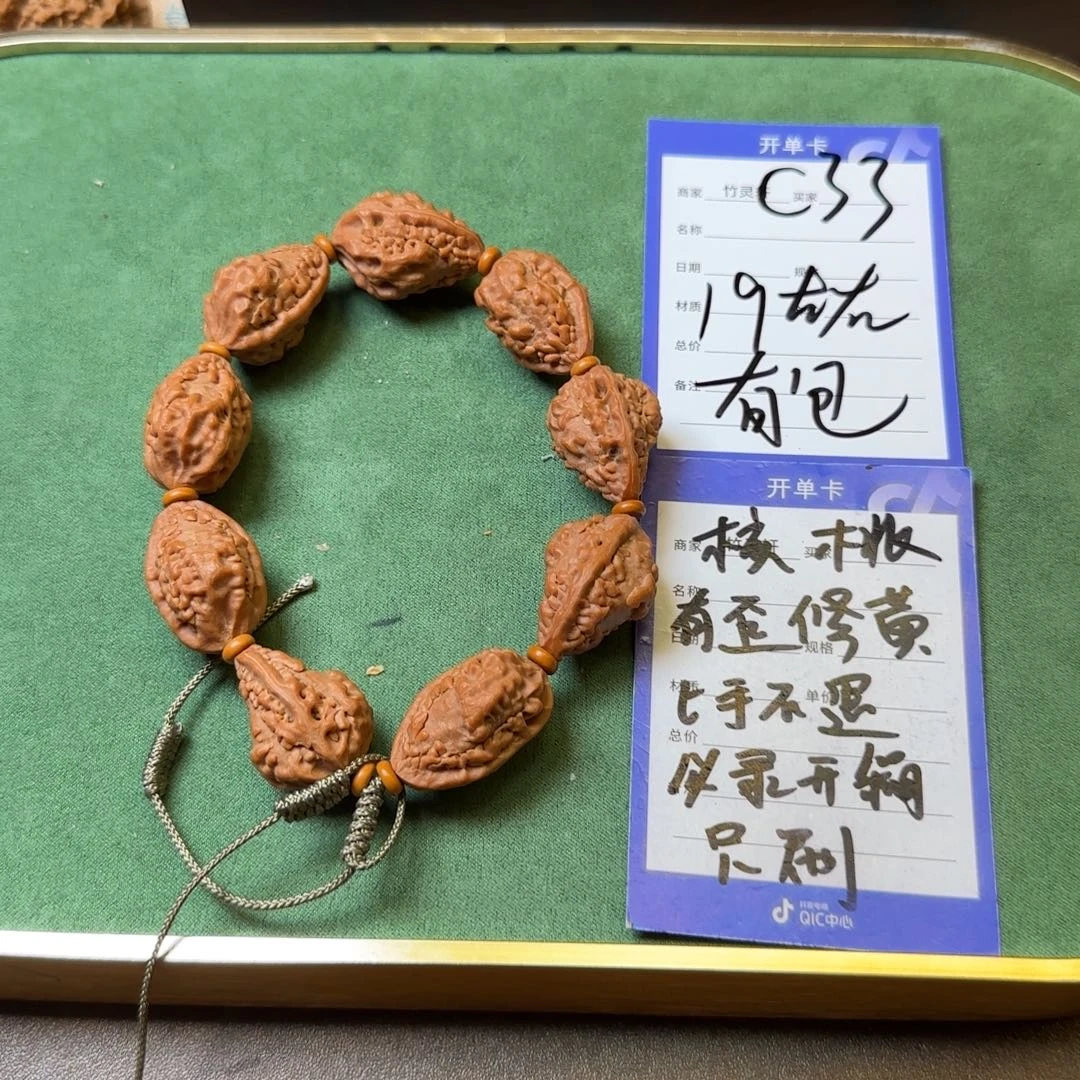 开单卡
商家 竹灵轩 买家
C33
名称
日期 规
材质
19左右
总价
备注
有包
开单卡
商家 买家
核桃
名称
有歪修黄
日期 规格
材质 单价
匕手不退
总价
必录开箱
只刷
抖音电商
QIC中心